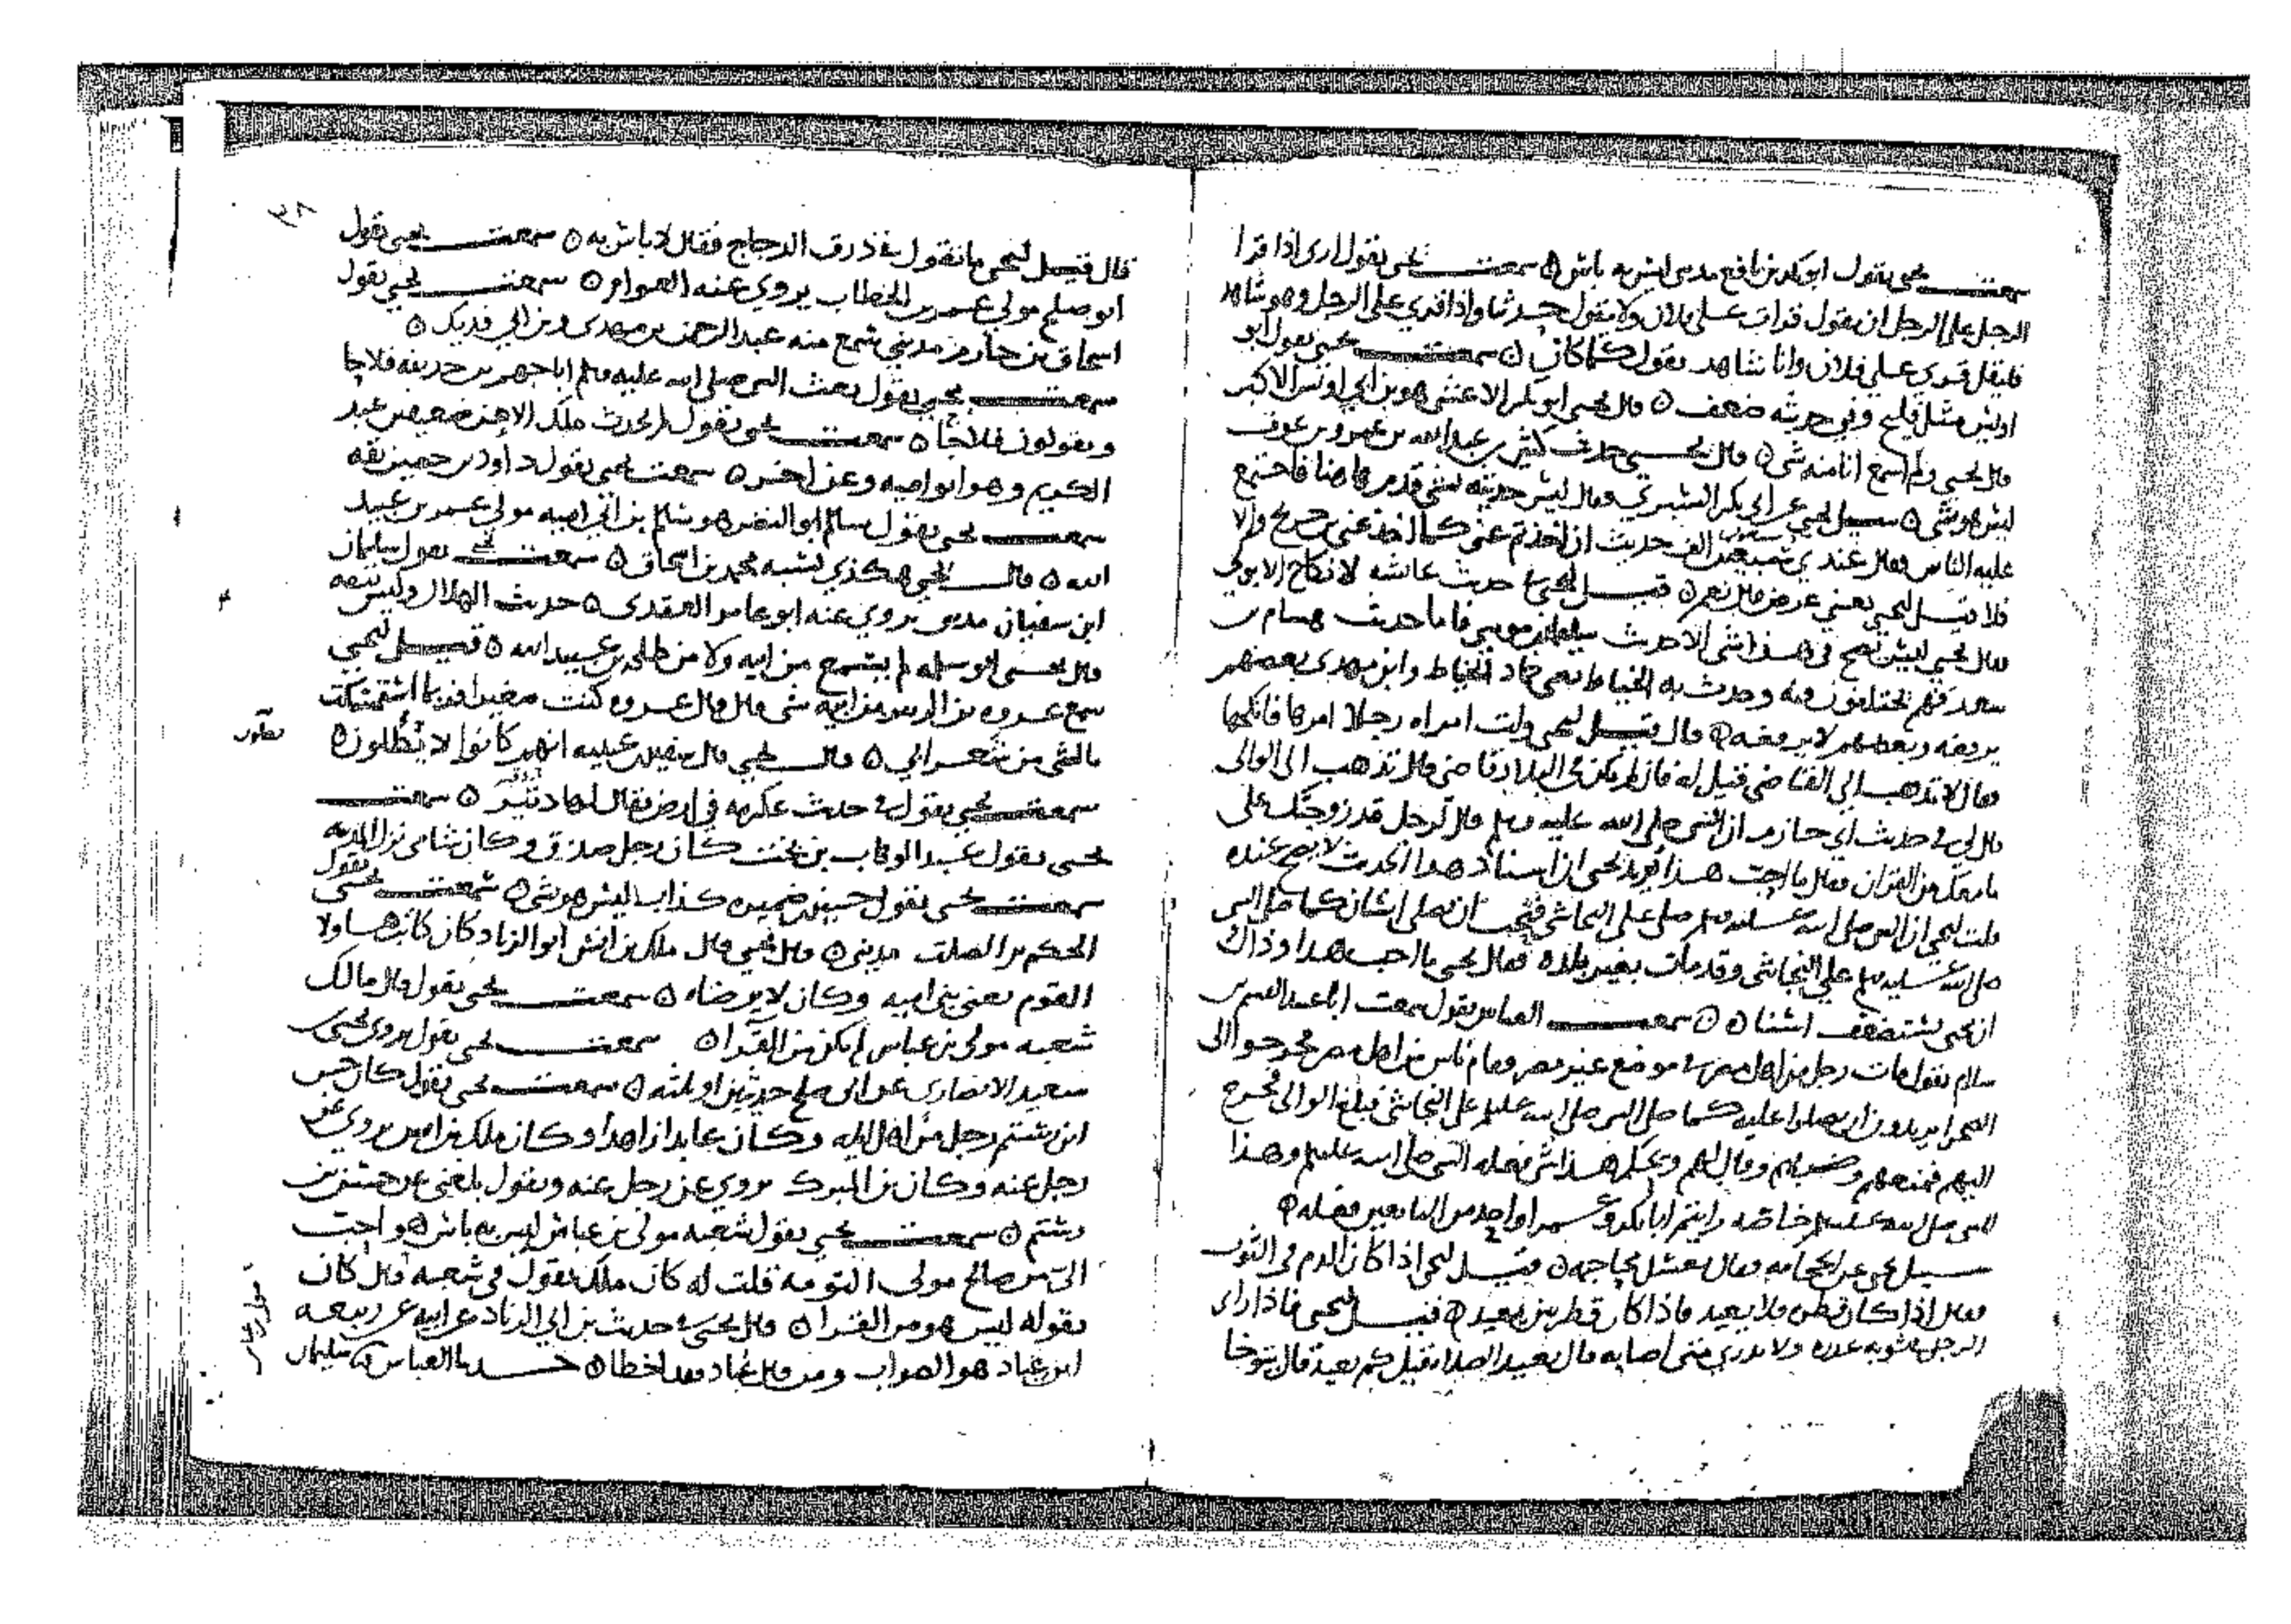 سمعت يحيى يقول ابو بكر بن نافع مديني ليس به باس ه سمعت يحيى يقول ارى اذا قرا
الرجل على الرجل ان يقول قرات على فلان ولا يقول حدثنا واذا قري على الرجل وهو شاهد
فليقل قري على فلان وانا شاهد يقول كما كان ه سمعت يحيى يقول ابو
اويس مثل فليح وفي حديثه ضعف ه قال يحيى ابو بكر الاعشى هو بن ابي اويس الاكبر
قال يحيى ولم اسمع انا منه شي ه قال يحيى حديث كثير بن عبد الله بن عمرو بن عوف
ليس هو شي ه سيل يحيى عن ابي بكر السبري وقال ليس حديثه بشي قدم هاهنا فاجتمع
عليه الناس فقال عندي سبعين الف حديث ان اخذتم عني كما اخذ عني بن جريج والا
فلا قيل ليحيى يعني عرض قال نعم ه قيل ليحيى في حديث عايشه لا نكاح الا بولي
فقال يحيى ليس يصح في هذا شي الا حديث سليمان بن موسى فاما حديث هشام بن
سعد فهم يختلفون فيه وحدث به الخياط يعني حماد الخياط وابن مهدي بعضهم
يرفعه وبعضهم لا يرفعه ه قال قيل ليحيى ولت امراه رجلا امرها فانكحها
فقال لا تذهب الى القاضي قيل له فان لم يكن في البلاد قاضي قال تذهب الى الوالي
قال لي في حديث ابي حازم ان النبي صلى الله عليه وسلم قال لرجل قد زوجتك على
ما معك من القران فقال ما اجب هذا يريد يحيى ان اسناد هذا الحديث لا يصح عنده
قلت ليحيى ان النبي صلى الله عليه وسلم صلى على النجاشي فتحب ان يصلي انسان كما صلى النبي
صلى الله عليه وسلم على النجاشي وقد مات بغير بلاده فقال يحيى ما احب هذا وذاك
ان يحيى يستضعف اسنا ه ه سمعت العباس يقول سمعت ابا عبد القسم بن
سلام يقول مات رجل من اهل مصر في موضع غير مصر وقام ناس من اهل مصر فخرجوا الى
الصحرا يريدون ان يصلوا عليه كما صلى النبي صلى الله عليه وسلم على النجاشي فبلغ الوالي فخرج
اليهم فمنعهم وضربهم وقال لهم ويحكم هذا شي فعله النبي صلى الله عليه وسلم وهذا
النبي صلى الله عليه وسلم خاصه رايتم ابا بكر وعمر او احد من التابعين فعله ه
سيل يحيى عن الحجامه فقال يغسل محاجمه ه قيل ليحيى اذا كان الدم في الثوب
فقال اذا كان قطره فلا يعيد فاذا كان قطرتين يعيد ه قيل ليحيى فاذا راى
الرجل بثوبه عذره ولا يدري متى اصابه قال يعيد الصلاه قيل كم يعيد قال يتوخا
٣٨
قال قيل ليحيى ما تقول في ذرق الدجاج فقال لا باس به ه سمعت يحيى يقول
ابو صلح مولى عمر بن الخطاب يروي عنه العوام ه سمعت يحيى يقول
اسحاق بن حازم مديني سمع منه عبد الرحمن بن مهدي وبن ابي فديك ه
سمعت يحيى يقول بعث النبي صلى الله عليه وسلم ابا جهم بن حذيفه فلاجا
ويقولون فلاجا ه سمعت يحيى يقول لم يحدث ملك الا عن ضعيفين عبد
الكريم وهو ابو اميه وعن اخر ه سمعت يحيى يقول داود بن حصين ثقه
سمعت يحيى يقول سالم ابو النضر هو سالم بن ابي اميه مولى عمر بن عبيد
الله ه قال يحيى هكذى نسبه محمد بن اسحاق ه سمعت يحيى يقول سليمان
ابن سفيان مديني يروي عنه ابو عامر العقدي ه حديث الهلال وليس بثقه
قال يحيى ابو سلمه لم يسمع من ابيه ولا من طلحه بن عبيد الله ه قيل ليحيى
سمع عروه بن الزبير من ابيه شي قال قال عروه كنت صغيرا فربما استمسكت
بالشي من شعر ابي ه قال يحيى قال سفين بن عيينه انهم كانوا لا يتطلون ه
يطلون
سمعت يحيى يقول في حديث عكرمه في ارض يقال لها دثير ه سمعت
يحيى يقول عبد الوهاب بن بخت كان رجل صدق وكان شامي نزل المدينه
سمعت يحيى يقول حسين بن ضميره كذاب ليس هو شي ه سمعت يحيى يقول
الحكم بن الصلت مديني ه قال يحيى قال ملك بن انس ابو الزناد كان كاتب هاولا
القوم يعني بني اميه وكان لا يرضاه ه سمعت يحيى يقول قال مالك
شعبه مولى بن عباس لم يكن من القرا ه سمعت يحيى يقول يروي يحيى بن
سعيد الانصاري عن ابي صلح حديثين او ثلثه ه سمعت يحيى يقول كان حبس
ابن رستم رجل من اهل ايله وكان عابدا زاهدا وكان ملك بن انس يروي عن
رجل عنه وكان بن المبرك يروي عن رجل عنه ويقول بلغني عن حبس بن
رستم ه سمعت يحيى يقول شعبه مولى بن عباس ليس به باس ه واحب
الي من صالح مولى التومه قلت له كان ملك يقول في شعبه قال كان
يقوله ليس هو من القرا ه قال يحيى في حديث بن ابي الزناد عن ابيه عن ربيعه
ابن عباد هو الصواب ومن قال عباد فقد اخطا ه حدثنا العباس ه سليمان